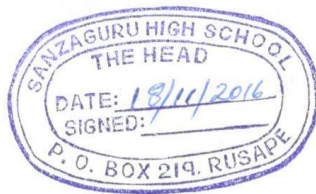 SANZAGURU HIGH SCHOOL
THE HEAD
DATE: 18/11/2016
SIGNED:
P. O. BOX 219, RUSAPE